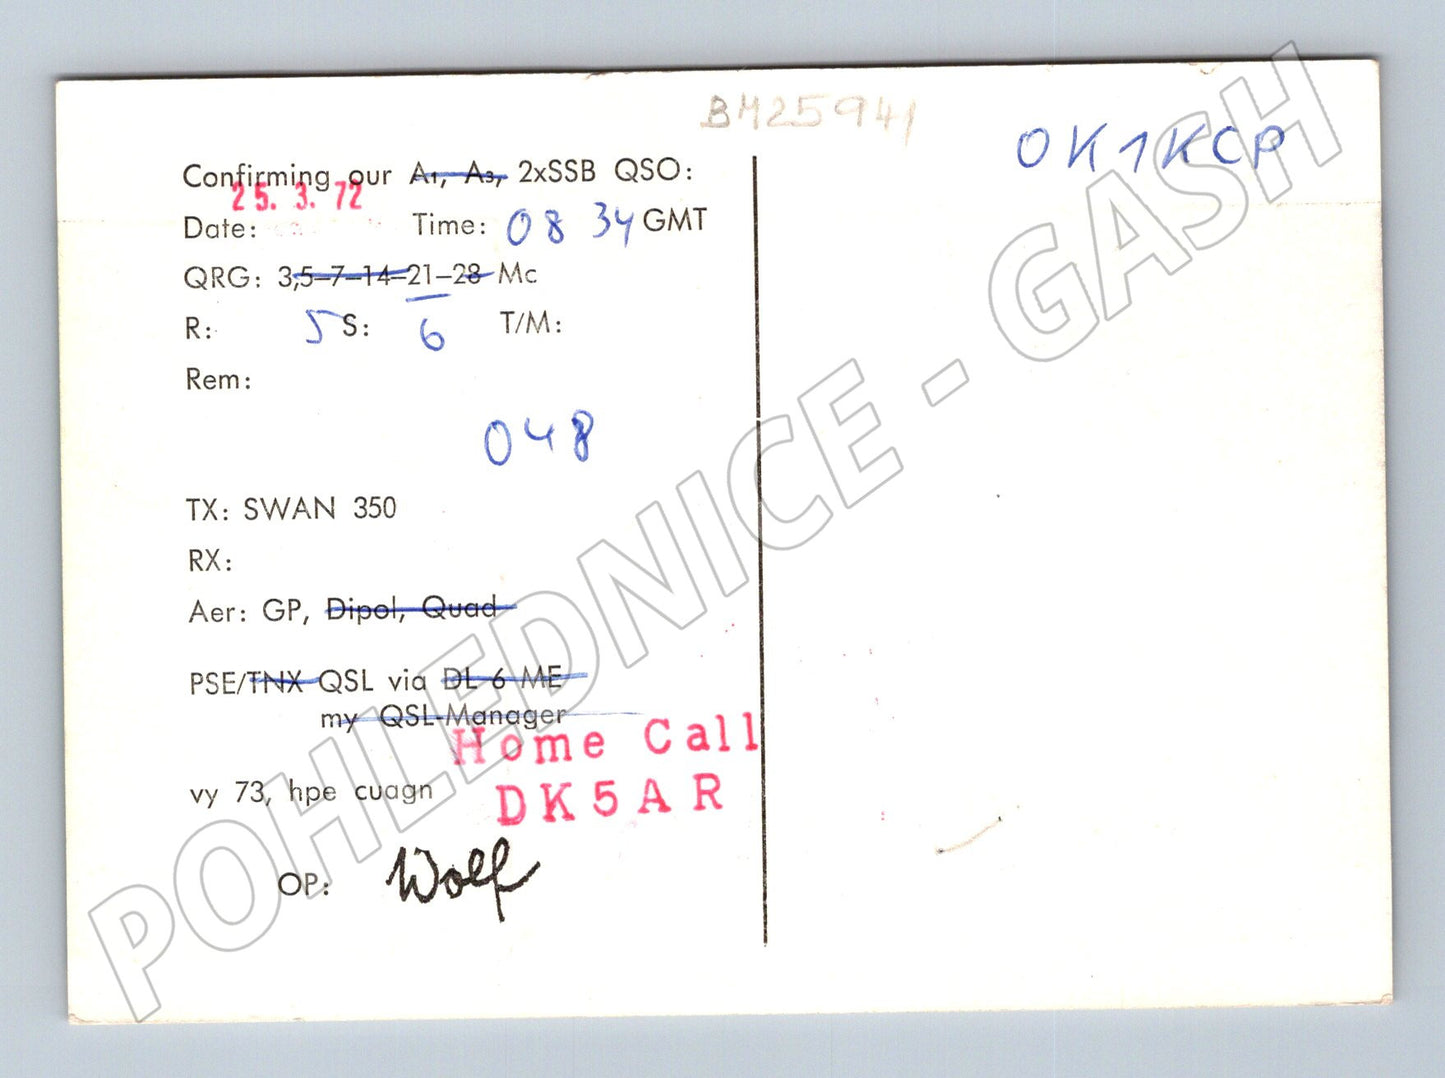 BM25941
OK1KCP
Confirming our A1, A3, 2xSSB QSO:
25. 3. 72
Date: Time: 08 34 GMT
QRG: 3,5–7–14–21–28 Mc
R: 5 S: 6 T/M:
Rem:
048
TX: SWAN 350
RX:
Aer: GP, Dipol, Quad
PSE/TNX QSL via DL 6 ME
my QSL-Manager
Home Call
vy 73, hpe cuagn
DK5AR
OP: Wolf
POHLEDNICE - GASH